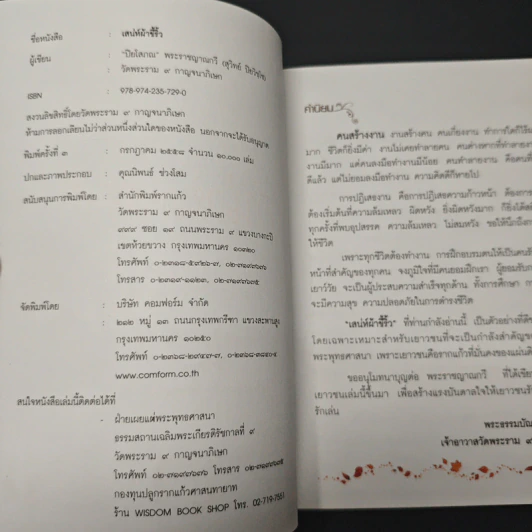 ชื่อหนังสือ : เสน่ห์ผ้าขี้ริ้ว
ผู้เขียน : "ปิยโสภณ" พระราชญาณกวี (สุวิทย์ ปิยวิชฺโช)
: วัดพระราม ๙ กาญจนาภิเษก
ISBN : 978-974-235-729-0
สงวนลิขสิทธิ์โดยวัดพระราม ๙ กาญจนาภิเษก
ห้ามการลอกเลียนไม่ว่าส่วนหนึ่งส่วนใดของหนังสือ นอกจากจะได้รับอนุญาต
พิมพ์ครั้งที่ ๓ : กรกฎาคม ๒๕๕๘ จำนวน ๑๐,๐๐๐ เล่ม
ปกและภาพประกอบ : คุณนิพนธ์ ช่วงโสม
สนับสนุนการพิมพ์โดย : สำนักพิมพ์รากแก้ว
วัดพระราม ๙ กาญจนาภิเษก
๙๙๙ ซอย ๑๙ ถนนพระราม ๙ แขวงบางกะปิ
เขตห้วยขวาง กรุงเทพมหานคร ๑๐๓๒๐
โทรศัพท์
โทรสาร
จัดพิมพ์โดย : บริษัท คอมฟอร์ม จำกัด
: ๒๑๒ หมู่ ๑๓ ถนนกรุงเทพกรีฑา แขวงสะพานสูง
กรุงเทพมหานคร ๑๐๒๕๐
โทรศัพท์
www.comform.co.th
สนใจหนังสือเล่มนี้ติดต่อได้ที่
- ฝ่ายเผยแผ่พระพุทธศาสนา
ธรรมสถานเฉลิมพระเกียรติรัชกาลที่ ๙
วัดพระราม ๙ กาญจนาภิเษก
โทรศัพท์ โทรสาร
กองทุนปลูกรากแก้วศาสนทายาท
ร้าน WISDOM BOOK SHOP โทร. 02-719-7661
คำนิยม
คนสร้างงาน งานสร้างคน คนเกี่ยงงาน ทำการใดก็ไร้ผล
มาก ชีวิตก็ยิ่งมีค่า งานไม่เคยทำลายคน คนต่างหากที่ทำลายงาน
งานมีมาก แต่คนลงมือทำงานมีน้อย คนทำลายงาน คือคนที่
ดีแล้ว แต่ไม่ยอมลงมือทำงาน ความคิดดีก็หายไป
การปฏิเสธงาน คือการปฏิเสธความก้าวหน้า ต้องการ
ต้องเริ่มต้นที่ความล้มเหลว ผิดหวัง ยิ่งผิดหวังมาก ก็ยิ่งได้
ทุกครั้งที่พบอุปสรรค ความล้มเหลว ไม่สมหวัง ขอให้นึกถึง
ให้ชีวิต
เพราะทุกชีวิตต้องทำงาน การฝึกอบรมคนให้เป็นคน
หน้าที่สำคัญของทุกคน จงภูมิใจที่มีคนยอมฝึกเรา ผู้ยอมรับ
เยาว์วัย จะเป็นผู้ประสบความสำเร็จทุกด้าน ทั้งการศึกษา
จะมีความสุข ความปลอดภัยในการดำรงชีวิต
"เสน่ห์ผ้าขี้ริ้ว" ที่ท่านกำลังอ่านนี้ เป็นตัวอย่างที่ดี
โดยเฉพาะเหมาะสำหรับเยาวชนที่จะเป็นกำลังสำคัญ
พระพุทธศาสนา เพราะเยาวชนคือรากแก้วที่มั่นคงของแผ่น
ขออนุโมทนาบุญต่อ พระราชญาณกวี ที่ได้เขียน
เยาวชนเล่มนี้ขึ้นมา เพื่อสร้างแรงบันดาลใจให้เยาวชน
รักเล่น
พระธรรมบัณ
เจ้าอาวาสวัดพระราม ๙